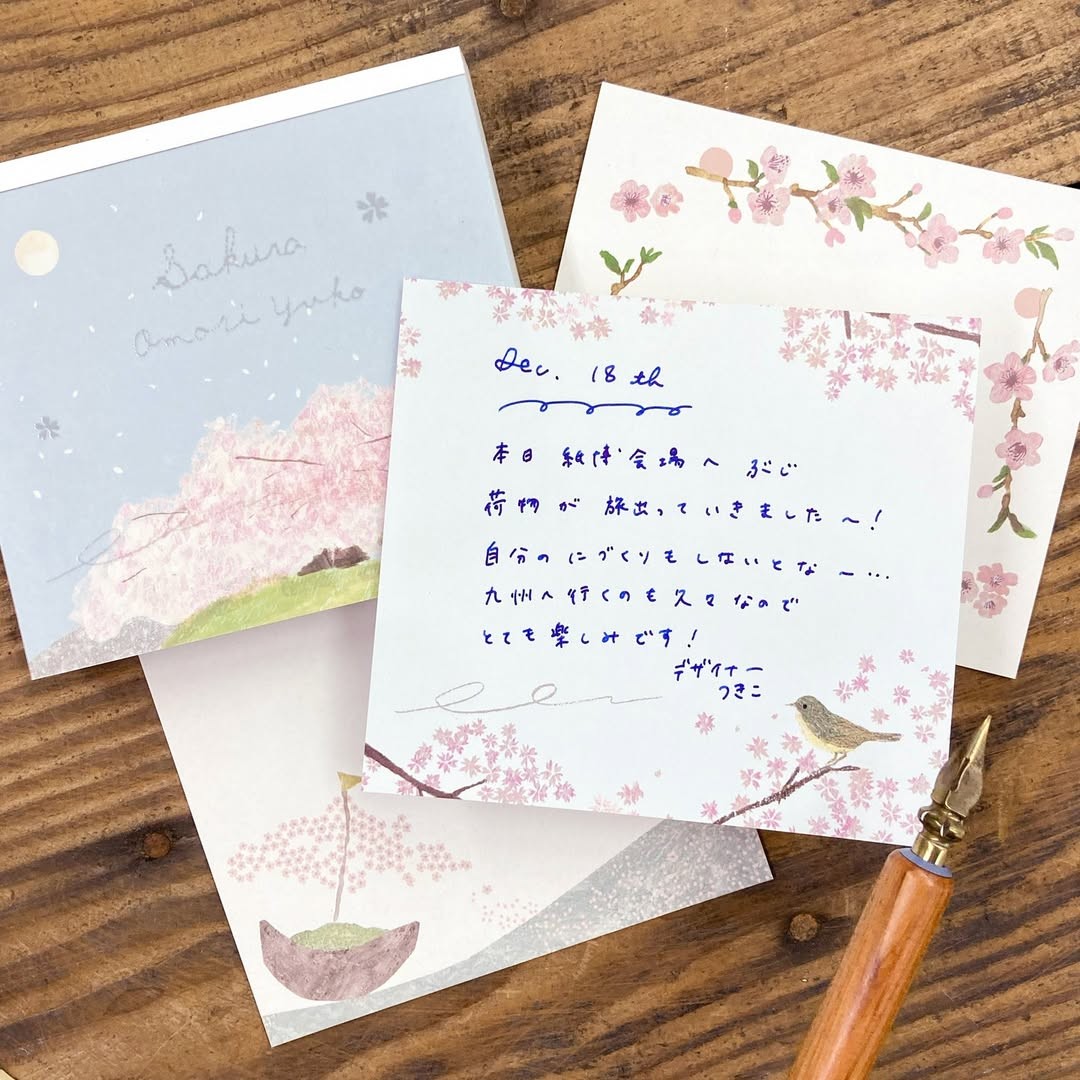 Sakura
Omori Yuko
Dec. 18 th
本日 紙博 会場へ ぶじ
荷物が 旅出っていきました〜!
自分の にづくりも しないとな〜…
九州へ行くのも 久々なので
とても 楽しみです!
デザイナー
つきこ